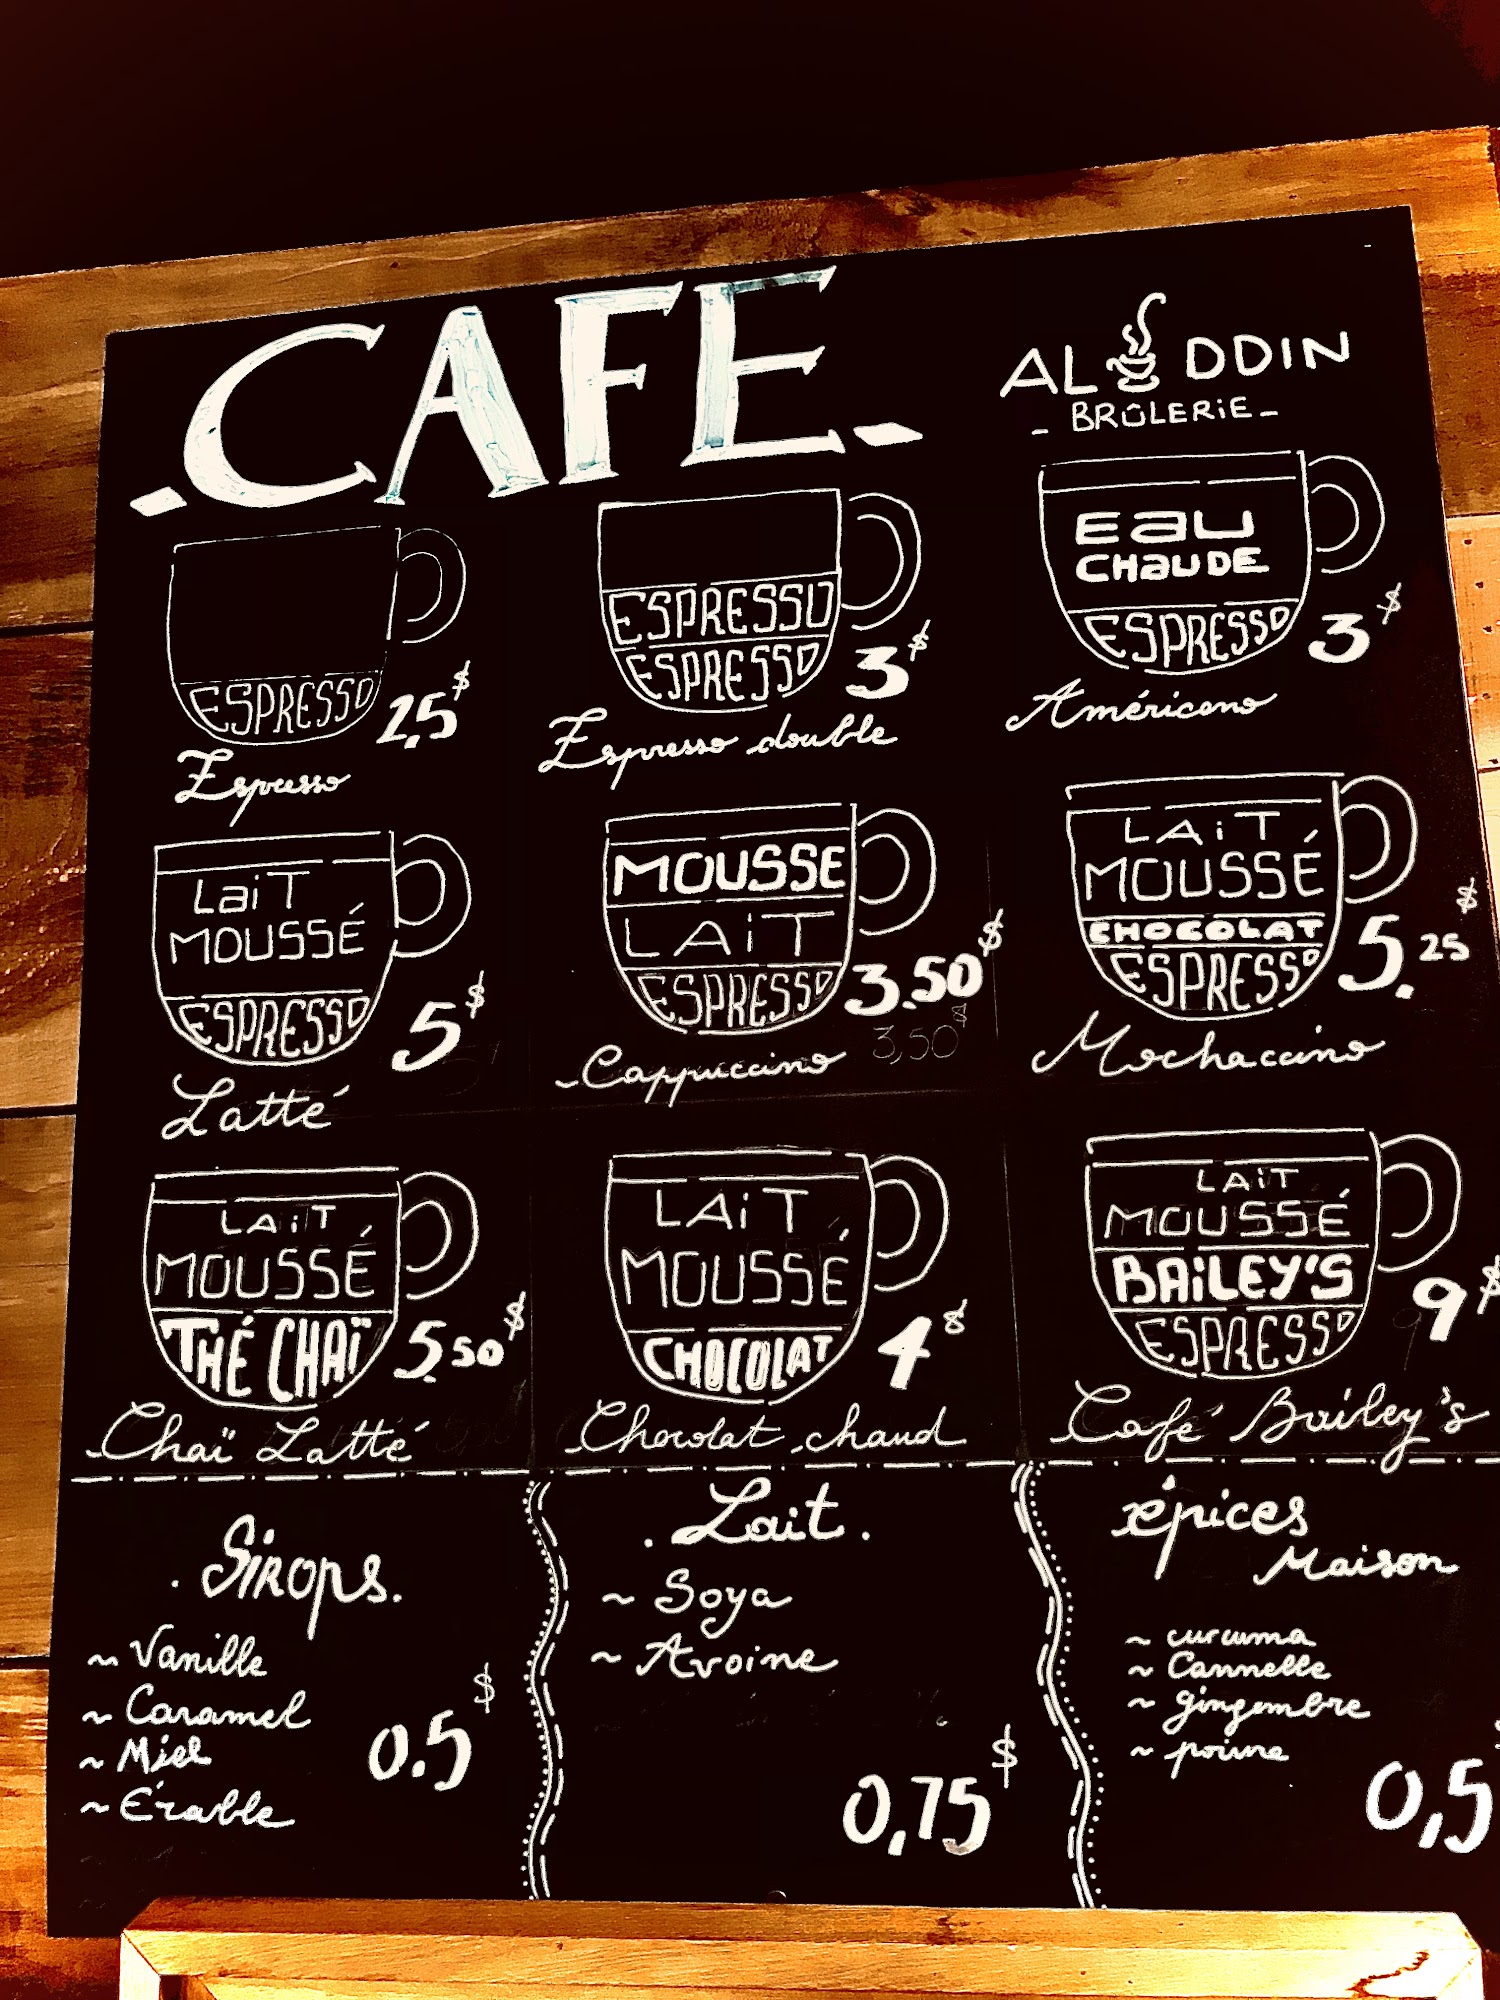 CAFE
ALADDIN
- BRÛLERIE -
ESPRESSO
2,5$
Espresso
ESPRESSO
ESPRESSO
3$
Espresso double
EAU
CHAUDE
ESPRESSO
3$
Américano
LAIT
MOUSSÉ
ESPRESSO
5$
Latté
MOUSSE
LAIT
ESPRESSO
3.50$
3,50$
Cappuccino
LAIT
MOUSSÉ
CHOCOLAT
ESPRESSO
5.25$
Mochaccino
LAIT
MOUSSÉ
THÉ CHAÏ
5.50$
Chaï Latté
LAIT
MOUSSÉ
CHOCOLAT
4$
Chocolat chaud
LAIT
MOUSSÉ
BAILEY'S
ESPRESSO
9$
Café Bailey's
. Sirops.
~ Vanille
~ Caramel
~ Miel
~ Érable
0.5$
. Lait .
~ Soya
~ Avoine
0,75$
épices
Maison
~ curcuma
~ Cannelle
~ gingembre
~ poivre
0,5